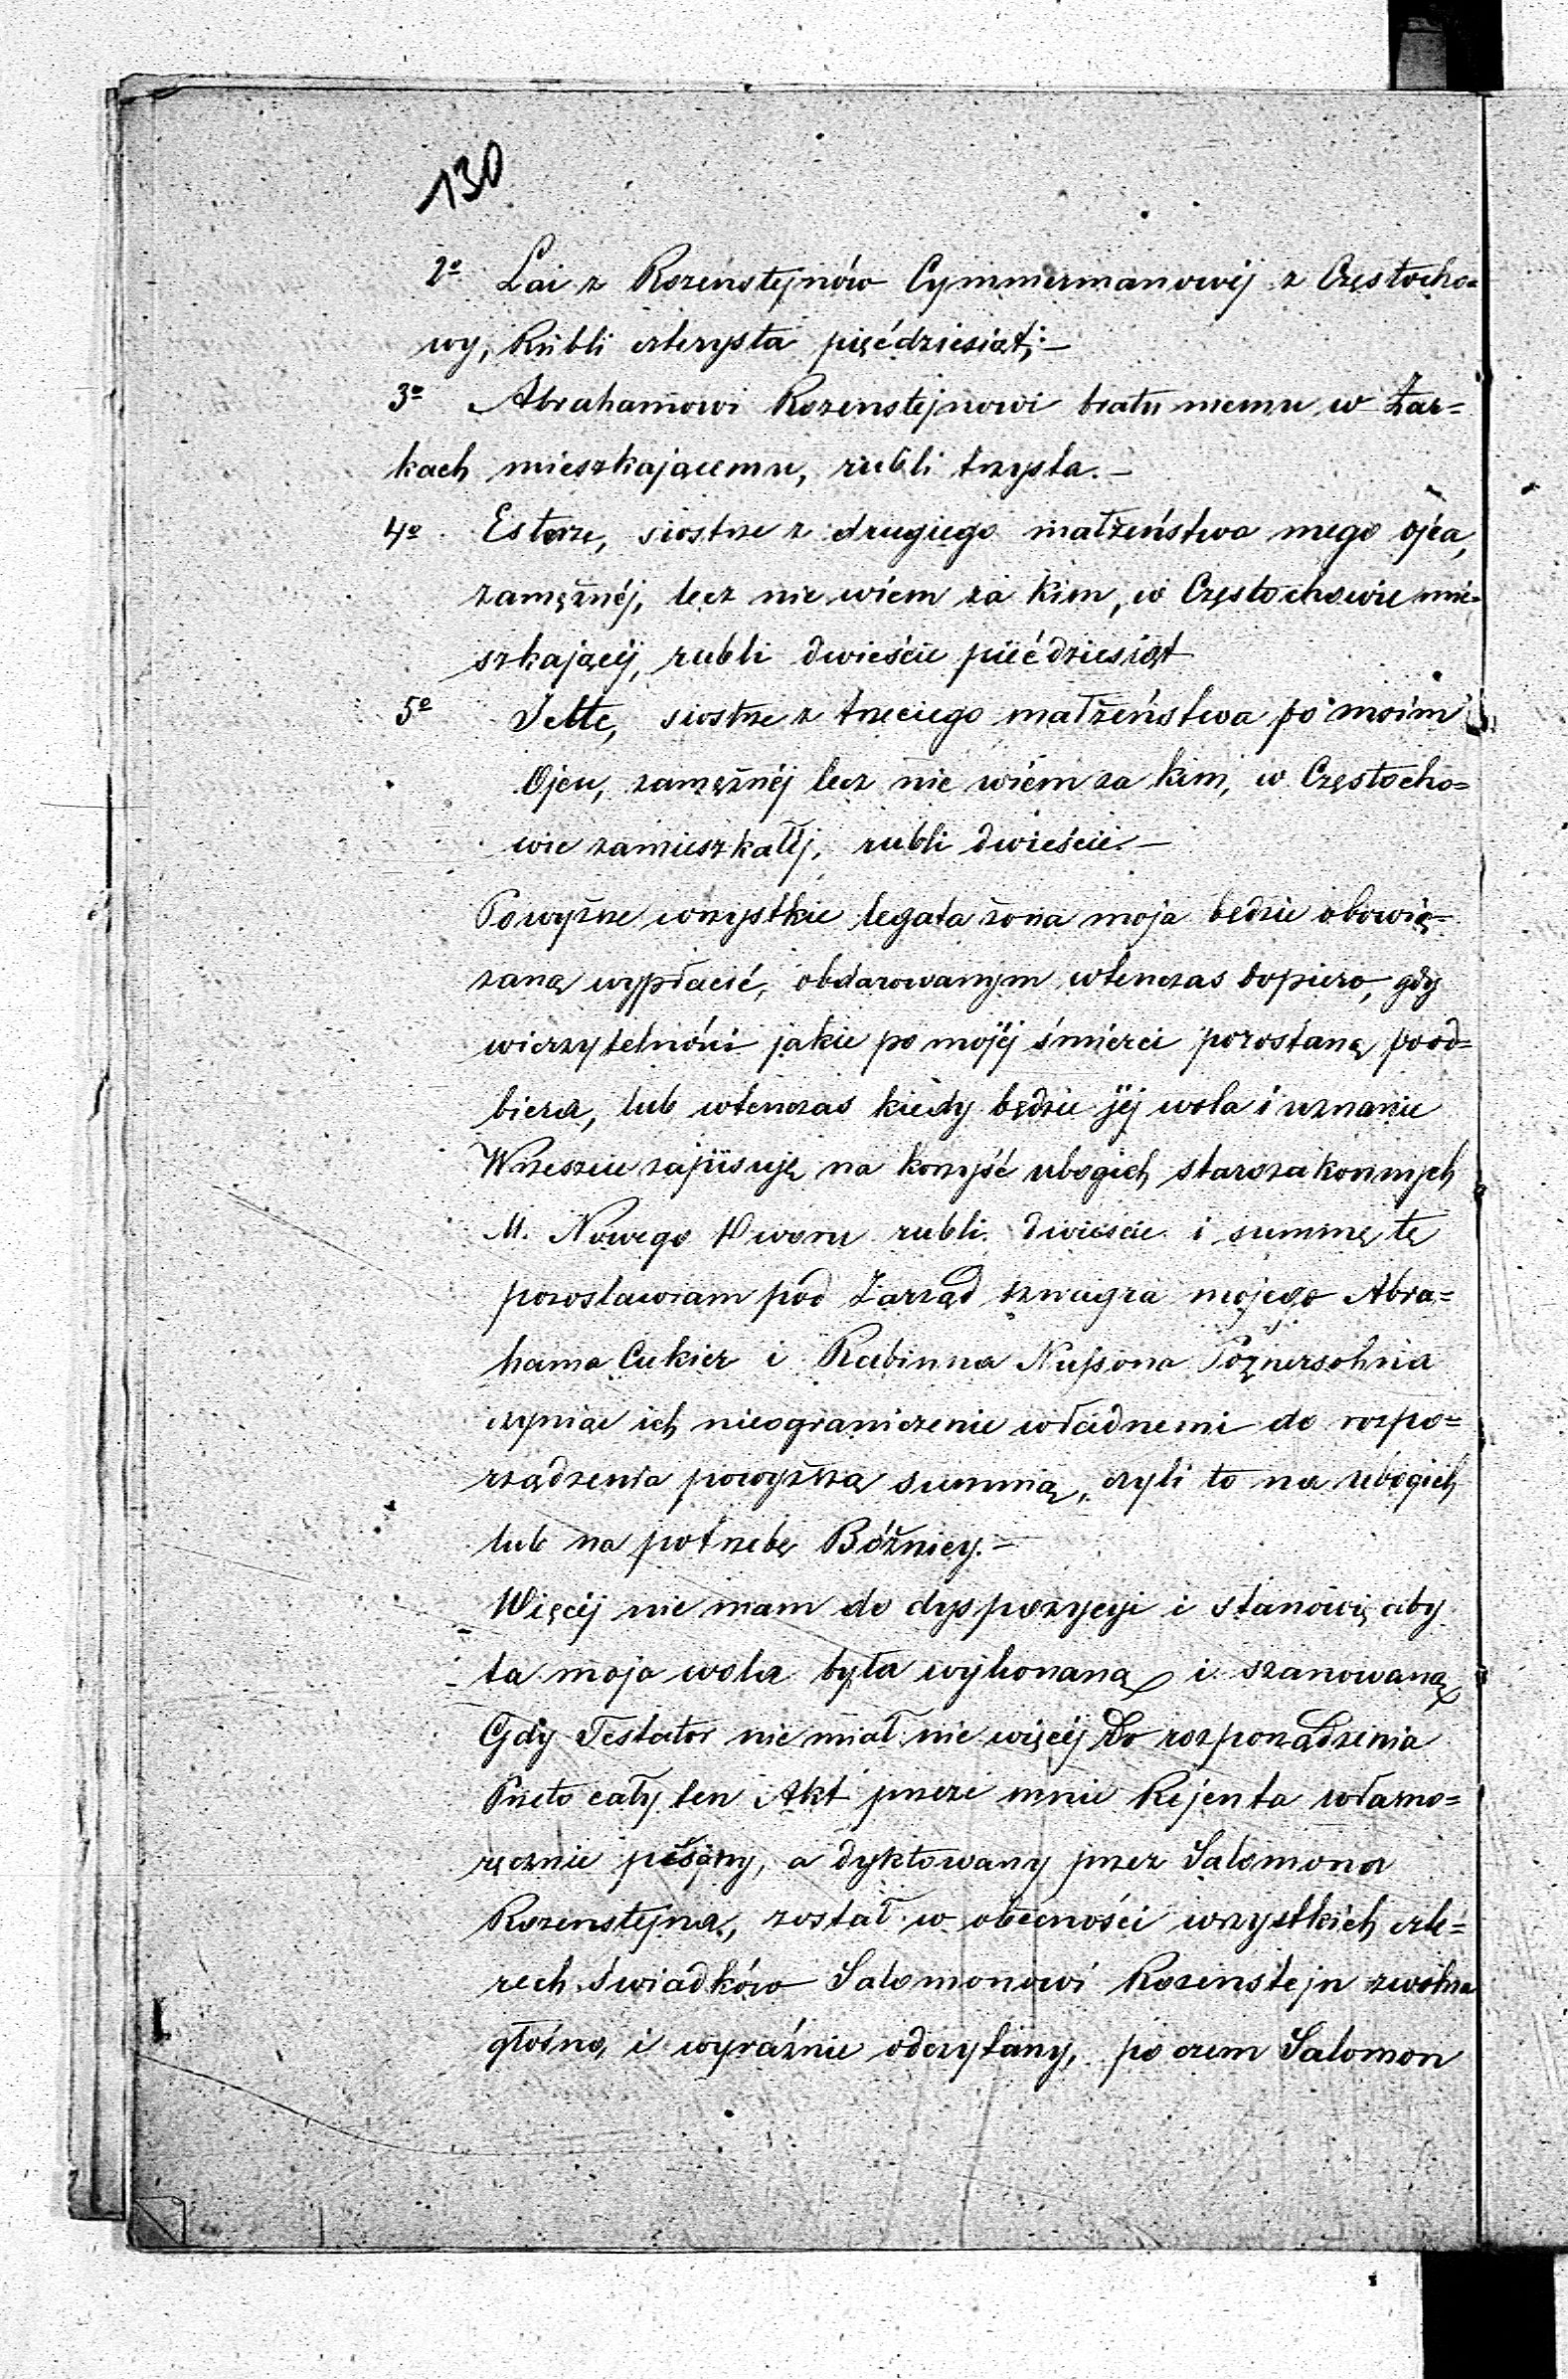 130
2o Łai z Rozenstejnów Cymmermanowéj z Częstocho=
wy, Rubli czterysta pięćdziesiąt;—
3o Abrahamowi Rozenstejnowi bratu memu w Żar=
kach mieszkającemu, rubli trzysta.—
4o Esterze, siostrze z drugiego małżeństwa mego ojca,
zamężnéj, lecz nie wiém za kim, w Częstochowie mie=
szkającéj, rubli dwieście pięćdziesiąt
5o Jette, siostrze z trzeciego małżeństwa po moim
Ojcu, zamężnéj lecz nie wiém za kim, w Częstocho=
wie zamieszkałéj, rubli dwieście.—
Powyższe wszystkie legata żona moja będzie obowią=
zaną wypłacić, obdarowanym wtenczas dopiero, gdy
wierzytelności jakie po mojéj śmierci pozostaną, pood=
biera, lub wtenczas kiedy będzie jéj wola i uznanie
Wreszcie zapisuję na korzyść ubogich starozakonnych
M. Nowego Dworu rubli dwieście i summę tę
pozostawiam pod Zarząd szwagra mojego Abra=
hama Cukier i Rabinna Nusona Poznersohna
czyniąc ich nieograniczenie władnemi do rozpo=
rządzenia powyższą summą, czyli to na ubogich
lub na potrzebę Bóżnicy.—
Więcéj nie mam do dyspozycyi i stanowię aby
ta moja wola była wykonaną i szanowaną
Gdy Testator nie miał nic więcéj do rozporządzenia
Przeto cały ten Akt przeze mnie Rejenta własno=
ręcznie pisany, a dyktowany przez Salomona
Rozenstejna, został w obecności wszystkich czte=
rech świadków Salomonowi Rozenstejn zwolna
głośno, i wyraźnie odczytany, po czem Salomon